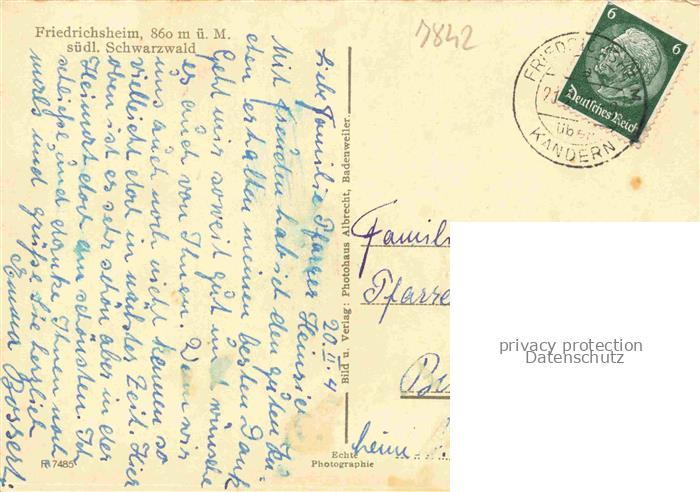 Friedrichsheim, 860 m ü. M.
südl. Schwarzwald
7842
6
6
Deutsches Reich
FRIEDRICHSHEIM
über
KANDERN
20. II. 4
Liebe Familie Pfarrer Heinsius
Mit Freuden hab ich den guten Ku-
chen erhalten meinen besten Dank
Geht mir soweit gut und wünsche
es auch von Ihnen. Wenn wir
uns auch noch nicht kennen so
vielleicht dort in nächster Zeit. Hier
oben ist es sehr schön aber in der
Heimat doch am schönsten. Ich
schließe und danke Ihnen noch
mals und grüße Sie herzlich
Emma Bossert
Bild u. Verlag: Photohaus Albrecht, Badenweiler
Famili
Pfarre
Echte
Photographie
R 7485
privacy protection
Datenschutz